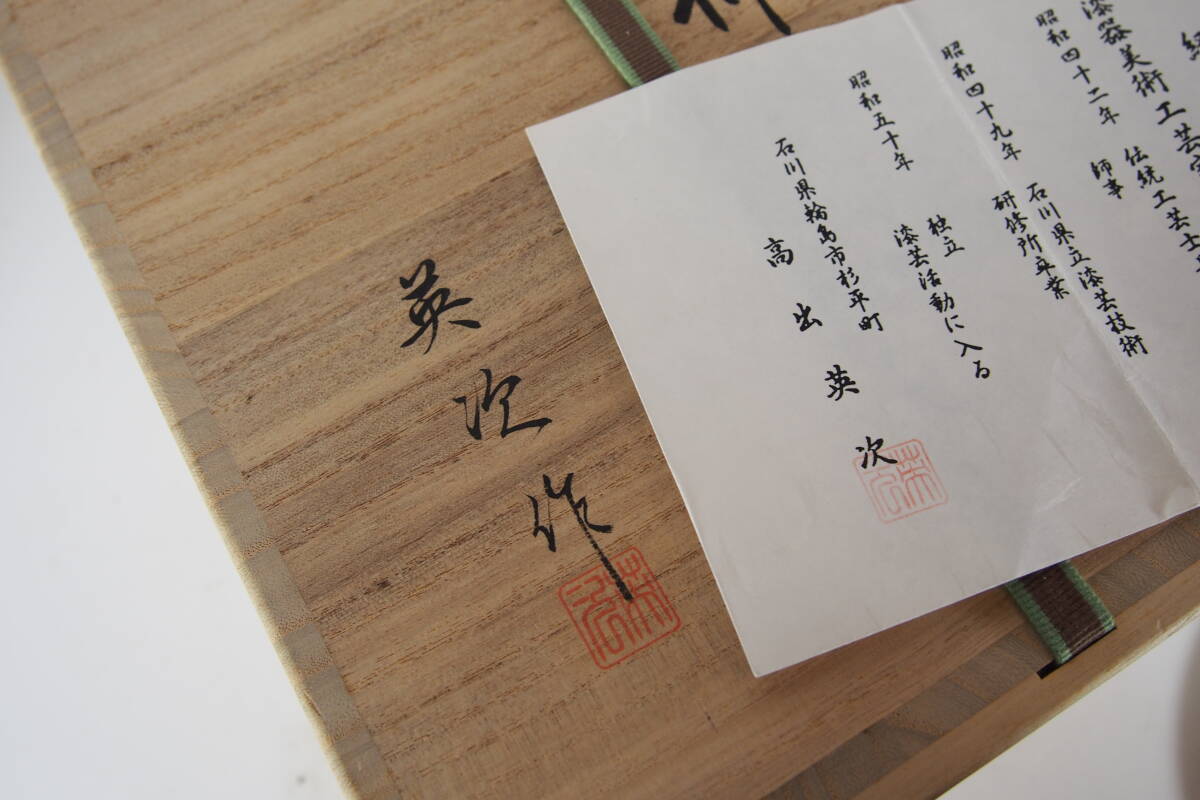 漆器美術工芸
昭和四十二年 伝統工芸士
師事
昭和四十九年 石川県立漆芸技術
研修所卒業
昭和五十年 独立
漆芸活動に入る
石川県輪島市杉平町
高出英次
英次作